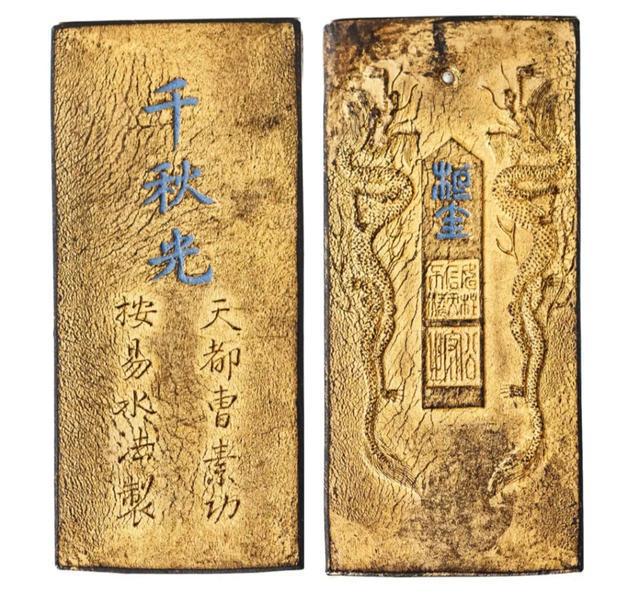 千秋光
天都曹素功
按易水法製
桓圭